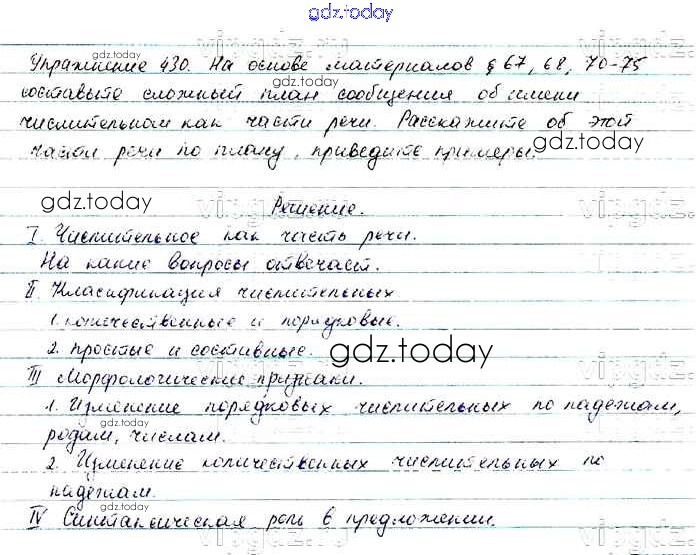 gdz.today
Упражнение 430. На основе материалов § 67, 68, 70-75
gdz.today
gdz.today
составьте сложный план сообщения об имени
числительном как части речи. Расскажите об этой
части речи по плану, приведите примеры.
gdz.today
gdz.today
Решение.
I. Числительное как часть речи.
На какие вопросы отвечает.
II. Классификация числительных
1. количественные и порядковые.
2. простые и составные.
gdz.today
III Морфологические признаки.
gdz.today
1. Изменение порядковых числительных по падежам,
родам, числам.
gdz.today
2. Изменение количественных числительных по
падежам.
gdz.today
IV Синтаксическая роль в предложении.
gdz.today